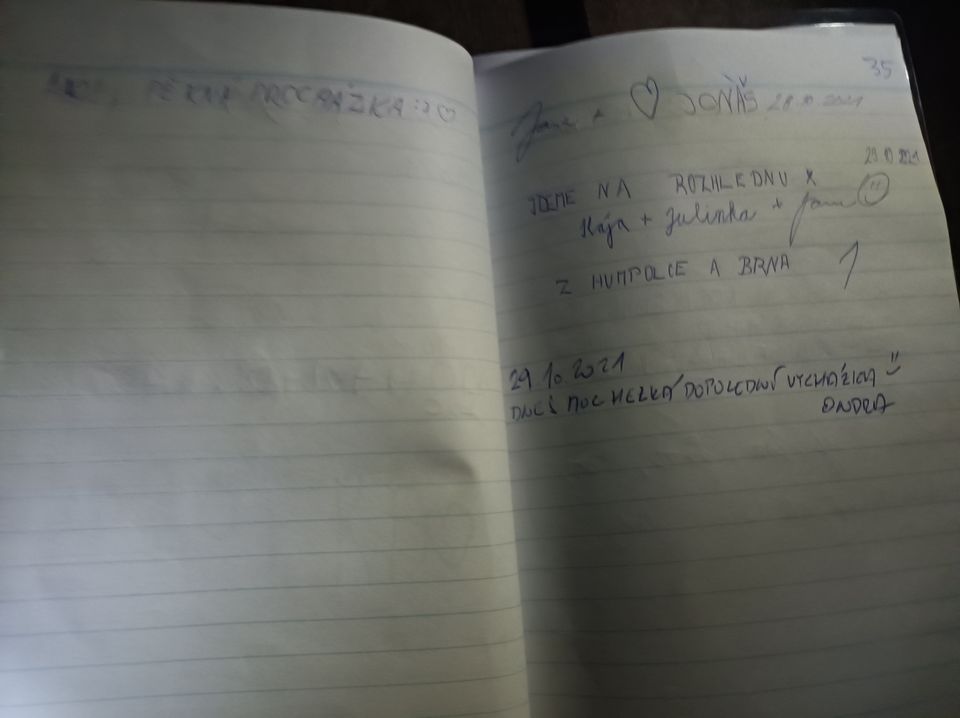 PĚKNÁ PROCHÁZKA :) ♡
35
Jana + ♡ JONÁŠ 28.10.2021
29.10.2021
JDEME NA ROZHLEDNU
Kája + Julinka + Jana
Z HUMPOLCE A BRNA
29.10.2021
DNES MOC HEZKÁ DOPOLEDNÍ VYCHÁZKA
ONDRA